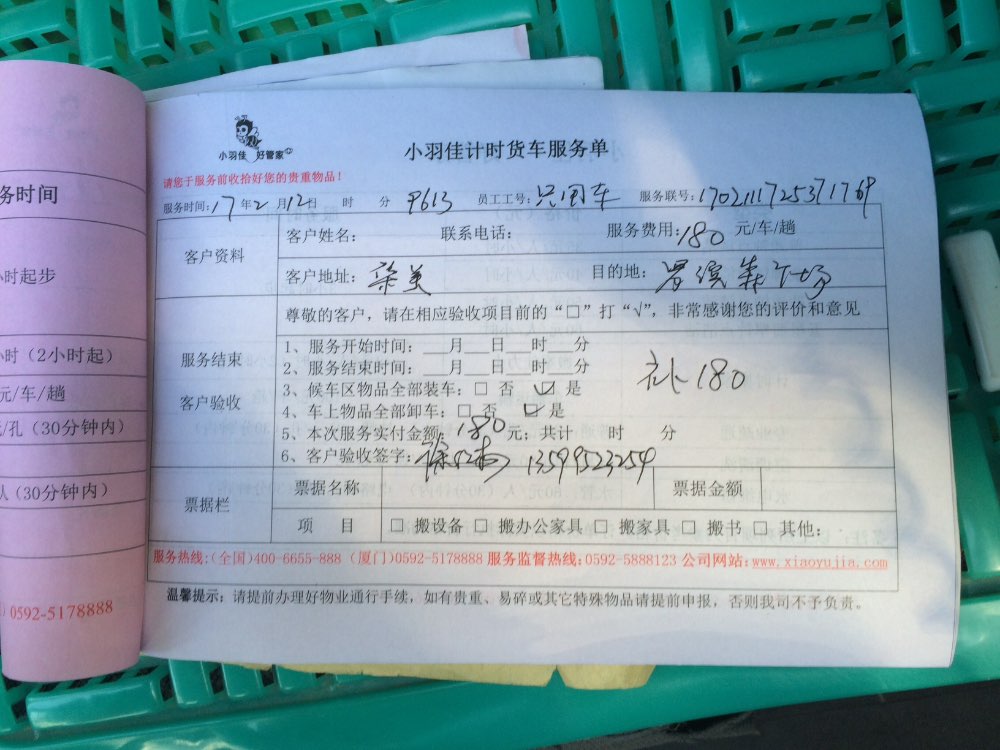 小羽佳 好管家
小羽佳计时货车服务单
请您于服务前收拾好您的贵重物品！
服务时间: 17 年 2 月 12 日 时 分 9613 员工工号: 只用车 服务联号:
客户资料
客户姓名: 联系电话: 服务费用: 180 元/车/趟
客户地址: 集美 目的地:
尊敬的客户，请在相应验收项目前的“□”打“√”，非常感谢您的评价和意见
服务结束
客户验收
1、服务开始时间: ___月___日 时 分
2、服务结束时间: ___月___日 时 分
3、候车区物品全部装车: □ 否 ☑ 是
补180
4、车上物品全部卸车: □ 否 ☑ 是
5、本次服务实付金额: 180 元; 共计 时 分
6、客户验收签字: 13599523254
票据栏
票据名称 票据金额
项 目 □ 搬设备 □ 搬办公家具 □ 搬家具 □ 搬书 □ 其他:
服务热线:(全国)400-6655-888 (厦门)0592-5178888 服务监督热线:0592-5888123 公司网站:www.xiaoyujia.com
温馨提示: 请提前办理好物业通行手续，如有贵重、易碎或其它特殊物品请提前申报，否则我司不予负责。
务时间
小时起步
时 (2小时起)
元/车/趟
元/孔 (30分钟内)
人 (30分钟内)
0592-5178888